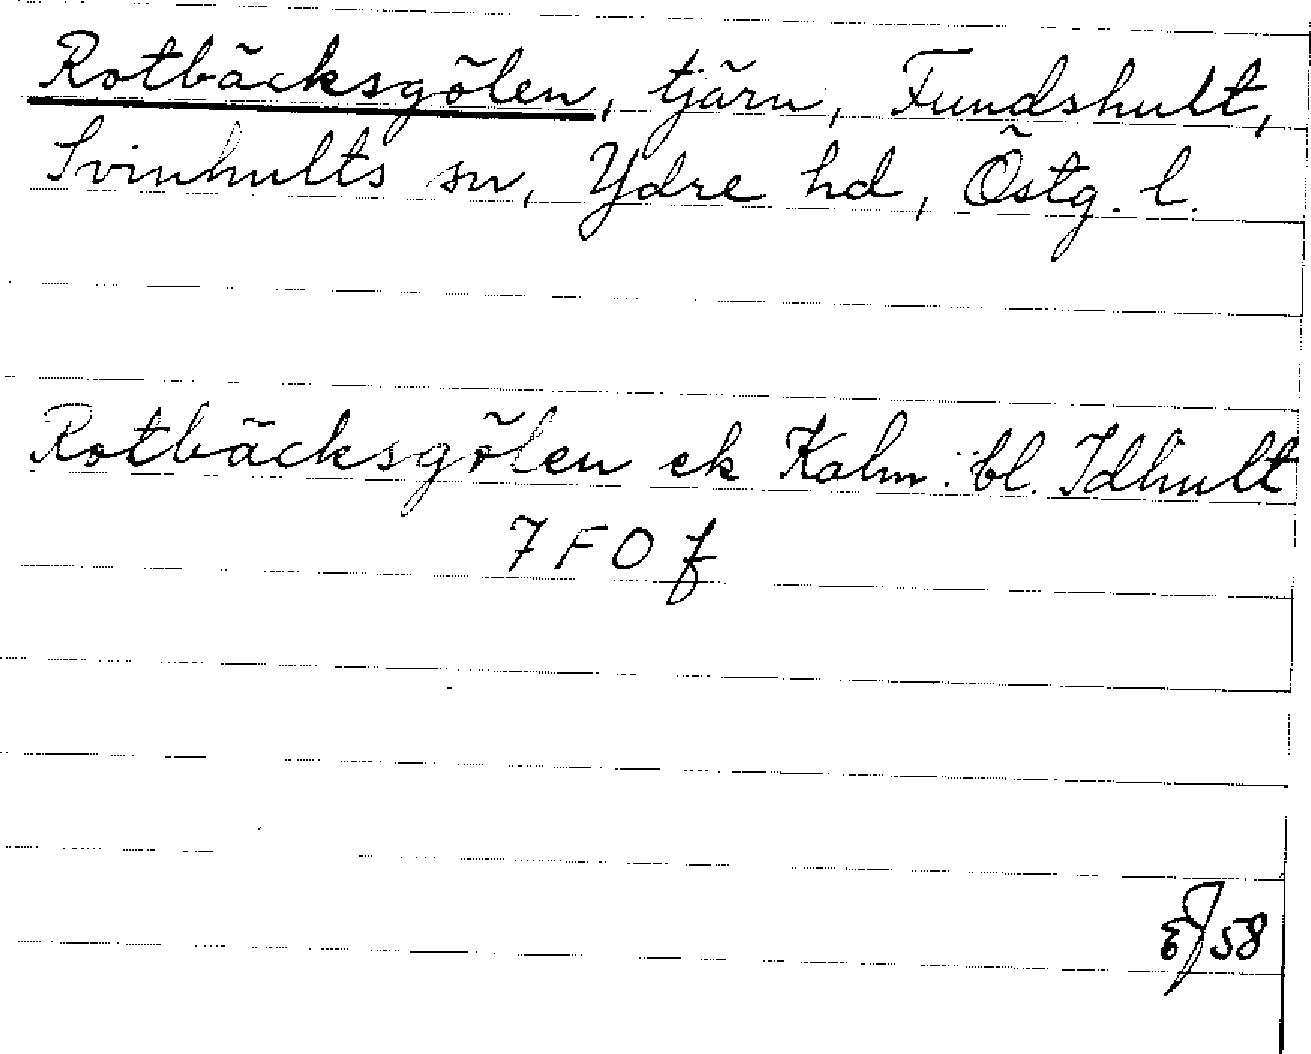 Rotbäcksgölen, tjärn, Fundshult,
Svinhults sn, Ydre hd, Östg. l.
Rotbäcksgölen ek Kalm. bl. Idhult
7 F O f
58